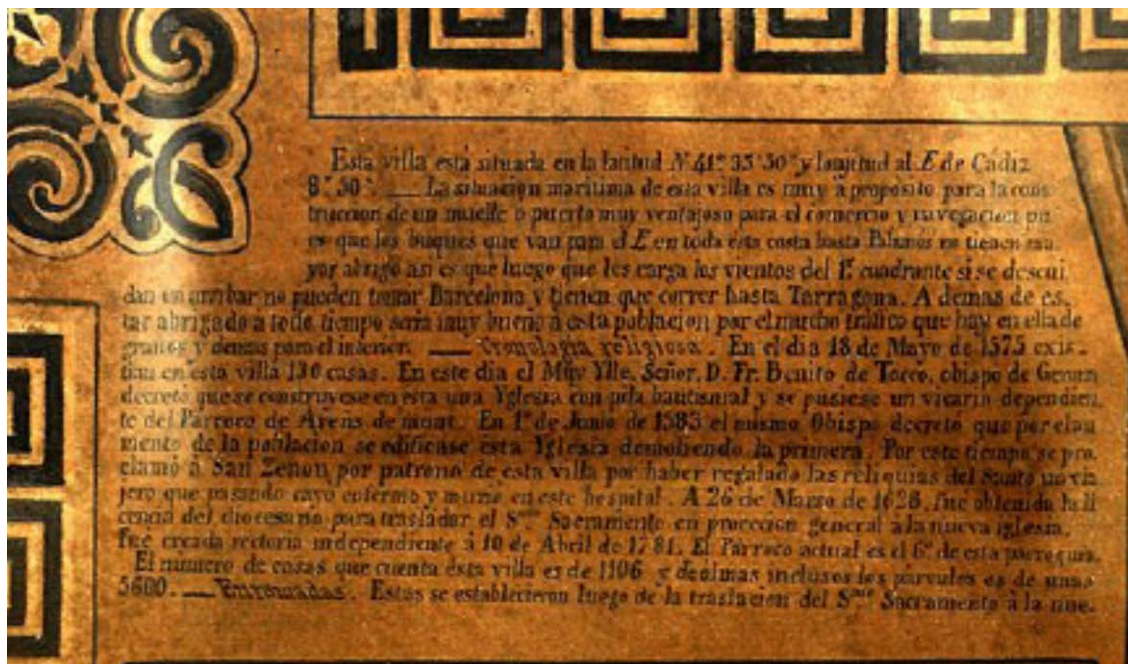 Esta villa está situada en la latitud N 41° 35' 30" y longitud al E de Cádiz
8° 30'. — La situacion marítima de esta villa es muy á propósito para la cons
truccion de un muelle ó puerto muy ventajoso para el comercio y navegacion pu
es que los buques que van para el E en toda esta costa hasta Palamós no tienen ma
yor abrigo asi es que luego que les carga los vientos del 1.r cuadrante si se descui
dan en arribar no pueden tomar Barcelona y tienen que correr hasta Tarragona. A demas de es.
tar abrigado a todo tiempo seria muy bueno á esta poblacion por el mucho tráfico que hay en ella de
granos y demas para el interior. — Cronologia religiosa. En el dia 18 de Mayo de 1575 exis-
tian en esta villa 130 casas. En este dia el Muy Ylle. Señor. D. Fr. Benito de Tocco, obispo de Gerona
decretó que se construyese en esta una Yglesia con pila bautismal y se pusiese un vicario dependien
te del Párroco de Arens de munt. En 1.º de Junio de 1583 el mismo Obispo decretó que por el au
mento de la poblacion se edificase esta Yglesia demoliendo la primera. Por este tiempo se pro
clamó á San Zenon por patrono de esta villa por haber regalado las reliquias del Santo un via
jero que pasando cayo enfermo y murió en este hospital. A 26 de Marzo de 1628. fue obtenida la li
cencia del diocesano para trasladar el S.mo Sacramento en procecion general a la nueva iglesia.
Fue creada rectoria independiente á 10 de Abril de 1781. El Párroco actual es el 6.º de esta parroquia.
El número de casas que cuenta ésta villa es de 1106 y de almas inclusos los párvulos es de unas
5600. — Enramadas. Estas se establecieron luego de la traslacion del S.mo Sacramento á la nue.